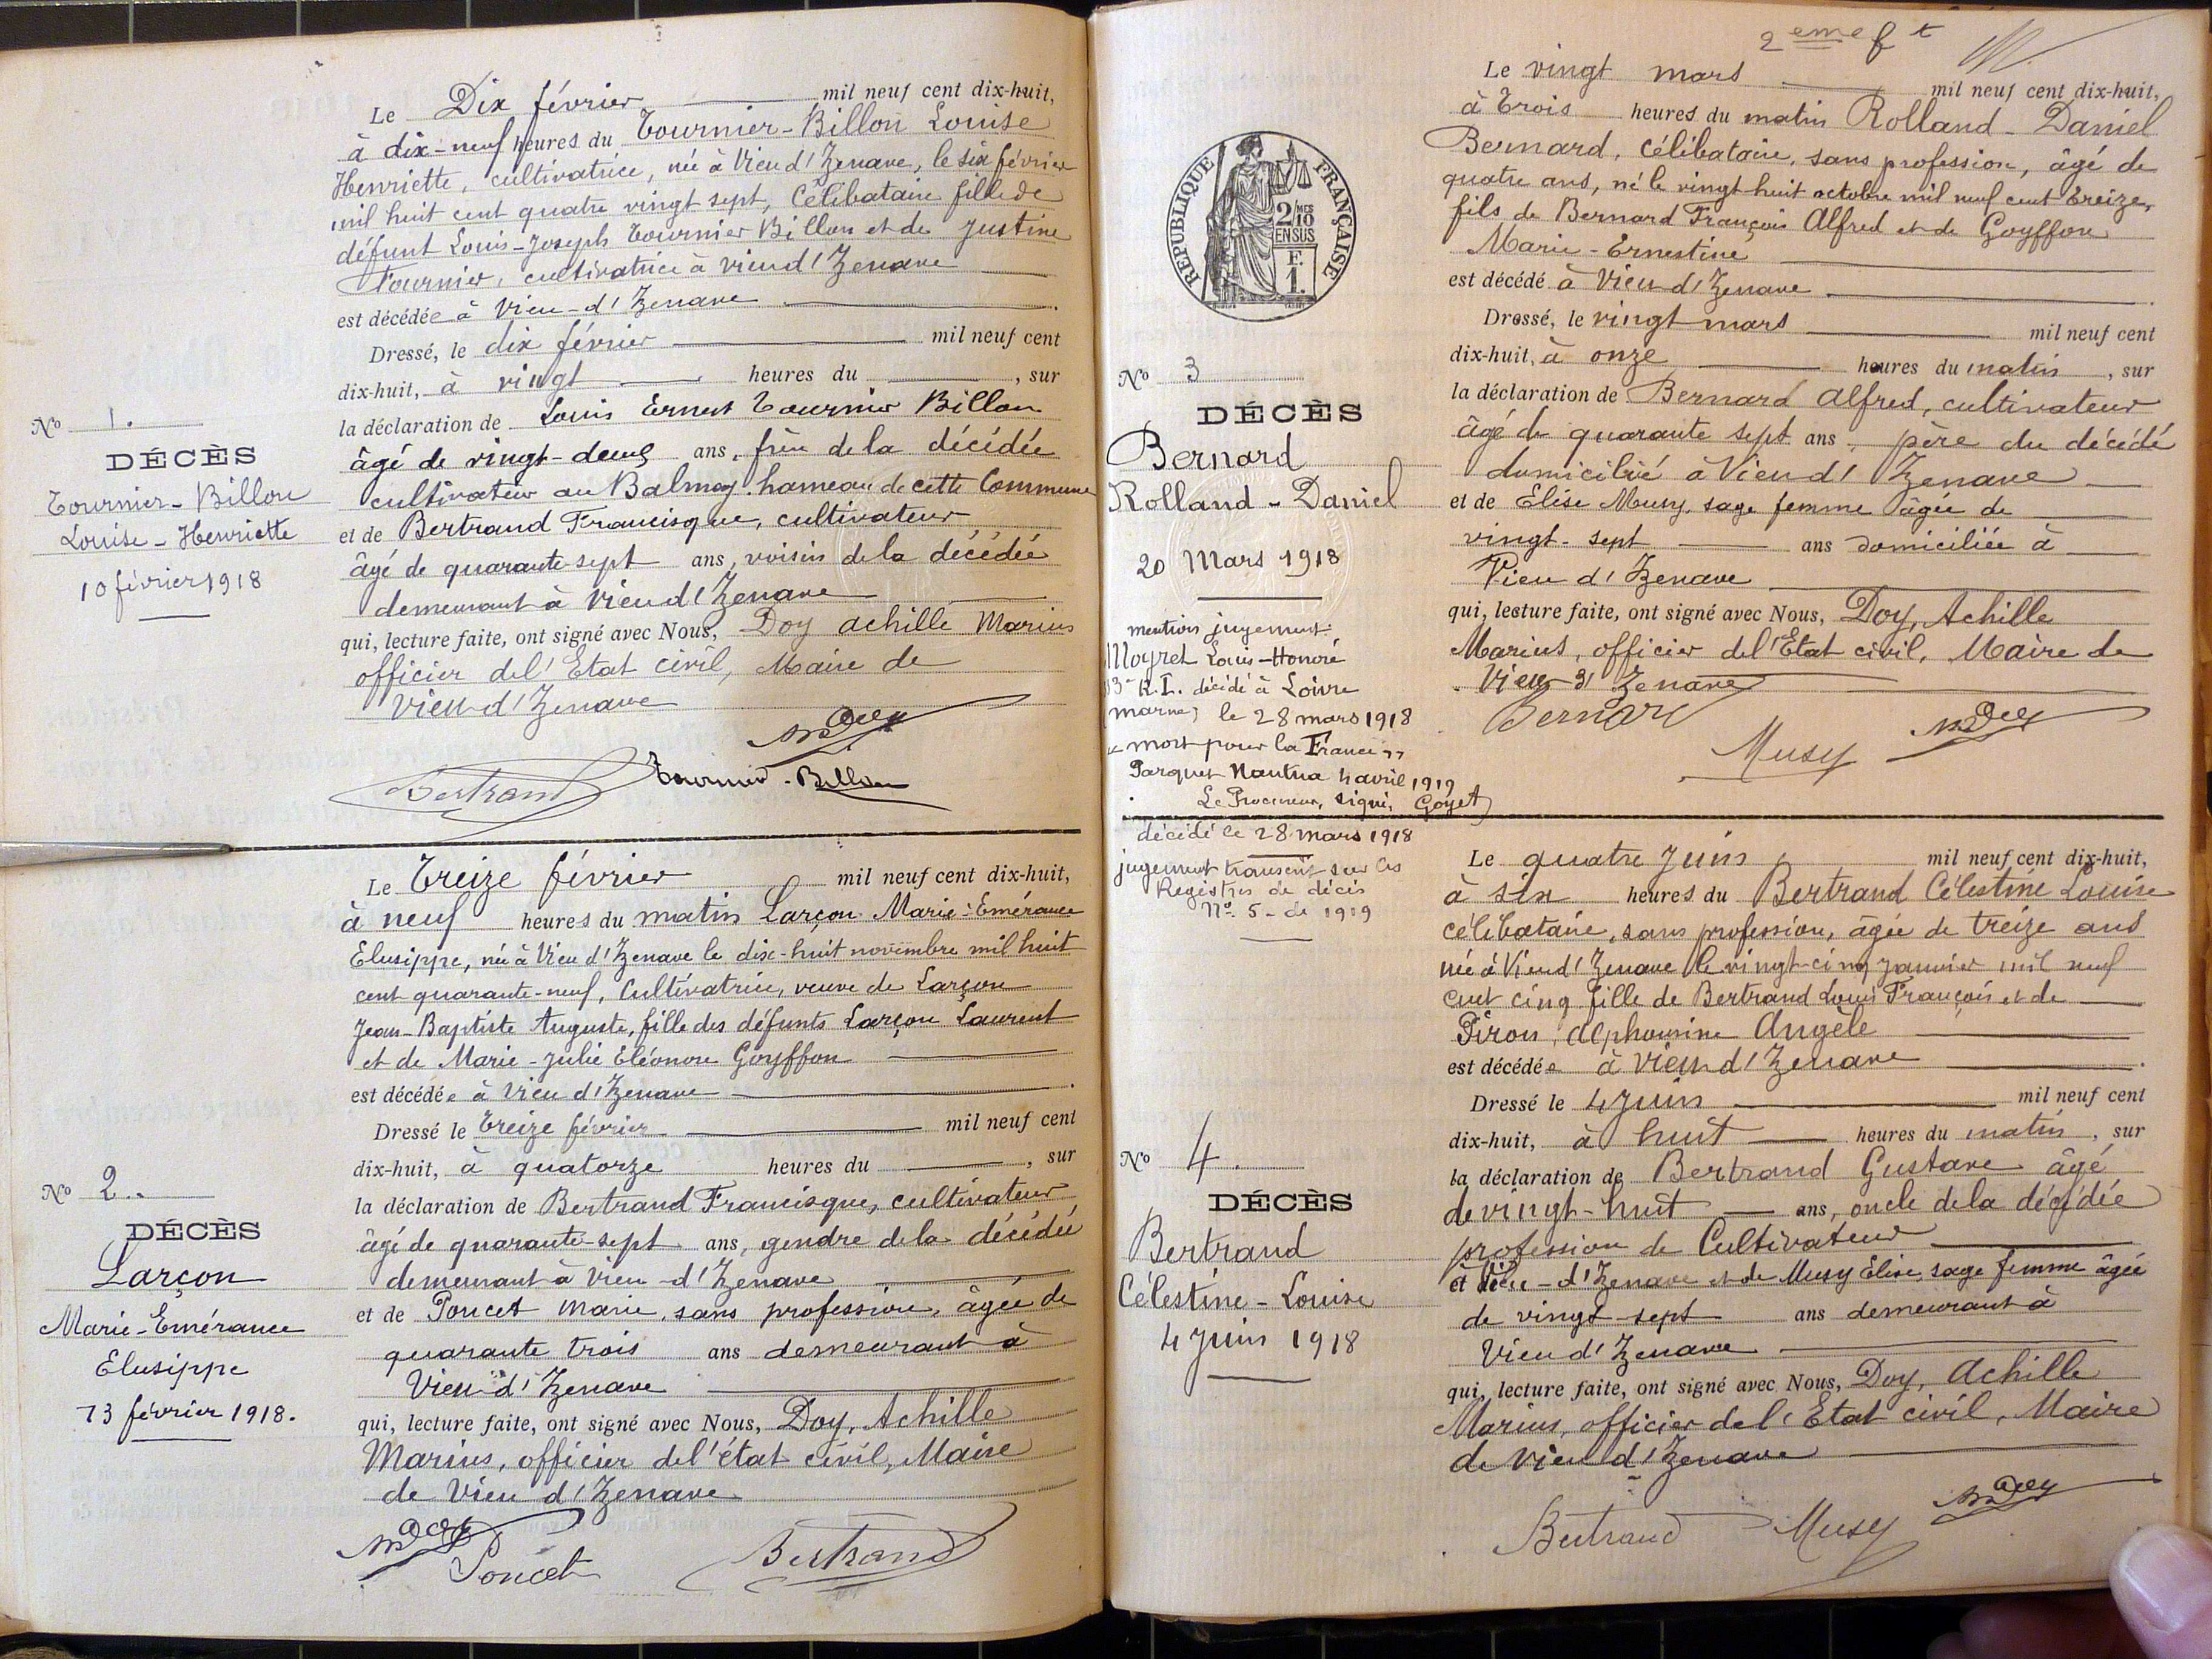 Le Dix février mil neuf cent dix-huit,
à dix-neuf heures du Tournier-Billon Louise
Henriette, cultivatrice, née à Vieu d'Izenave, le six février
mil huit cent quatre vingt sept, Célibataire fille de
défunt Louis-Joseph Tournier Billon et de Justine
Tournier, cultivatrice à Vieu d'Izenave
est décédée à Vieu-d'Izenave
Dressé, le dix février mil neuf cent
dix-huit, à vingt heures du , sur
la déclaration de Louis Ernest Tournier Billon
âgé de vingt-deux ans, frère de la décédée
cultivateur au Balmay hameau de cette Commune
et de Bertrand Francisque, cultivateur
âgé de quarante-sept ans, voisin de la décédée
demeurant à Vieu d'Izenave
qui, lecture faite, ont signé avec Nous, Doy Achille Marius
officier de l'Etat civil, Maire de
Vieu d'Izenave
Doy
Bertrand Tournier-Billon
No 1.
DÉCÈS
Tournier-Billon
Louise-Henriette
10 février 1918
Le Treize février mil neuf cent dix-huit,
à neuf heures du matin Larçon Marie-Emérance
Elusippe, née à Vieu d'Izenave le dix-huit novembre mil huit
cent quarante-neuf, Cultivatrice, veuve de Larçon
Jean-Baptiste Auguste, fille des défunts Larçon Laurent
et de Marie-Julie Eléonore Goyffon
est décédée à Vieu d'Izenave
Dressé le Treize février mil neuf cent
dix-huit, à quatorze heures du , sur
la déclaration de Bertrand Francisque, cultivateur
âgé de quarante-sept ans, gendre de la décédée
demeurant à Vieu-d'Izenave
et de Poncet Marie, sans profession, âgée de
quarante trois ans demeurant à
Vieu d'Izenave
qui, lecture faite, ont signé avec Nous, Doy, Achille
Marius, officier de l'état civil, Maire
de Vieu d'Izenave
Doy
Poncet Bertrand
No 2..
DÉCÈS
Larçon
Marie-Emérance
Elusippe
13 février 1918.
2eme ft
Le vingt mars mil neuf cent dix-huit,
à Trois heures du matin Rolland-Daniel
Bernard, Célibataire, sans profession, âgé de
quatre ans, né le vingt-huit octobre mil neuf cent treize,
fils de Bernard François Alfred et de Goyffon
Marie-Ernestine
est décédé à Vieu d'Izenave
Dressé, le vingt mars mil neuf cent
dix-huit, à onze heures du matin , sur
la déclaration de Bernard Alfred, cultivateur
âgé de quarante sept ans, père du décédé
domicilié à Vieu d'Izenave
et de Elise Musy, sage femme âgée de
vingt-sept ans domiciliée à
Vieu d'Izenave
qui, lecture faite, ont signé avec Nous, Doy, Achille
Marius, officier de l'Etat civil, Maire de
Vieu d'Izenave
Bernard
Musy Doy
RÉPUBLIQUE FRANÇAISE
2/10 MES
EN SUS
F.
1.
No 3
DÉCÈS
Bernard
Rolland-Daniel
20 Mars 1918
mention jugement
Moyret Louis-Honoré
R.I. décédé à Loivre
(marne) le 28 mars 1918
"mort pour la France"
Parquet Nantua 4 avril 1919
Le Procureur, signé, Goyet
décédé le 28 mars 1918
jugement transcrit sur les
Registres de décès
No. 5-de 1919
Le quatre Juin mil neuf cent dix-huit,
à six heures du Bertrand Célestine Louise
célibataire, sans profession, âgée de treize ans
née à Vieu d'Izenave le vingt-cinq janvier mil neuf
cent cinq fille de Bertrand Louis François et de
Piron, Alphonsine Angèle
est décédée à Vieu d'Izenave
Dressé le 4 Juin mil neuf cent
dix-huit, à huit heures du matin , sur
la déclaration de Bertrand Gustave âgé
de vingt-huit ans, oncle de la décédée
profession de Cultivateur
et Vieu-d'Izenave et de Musy Elise, sage femme âgée
de vingt-sept ans demeurant à
Vieu d'Izenave
qui, lecture faite, ont signé avec Nous, Doy, Achille
Marius, officier de l'Etat civil, Maire
de Vieu d'Izenave
Doy
Bertrand Musy
No 4.
DÉCÈS
Bertrand
Célestine-Louise
4 Juin 1918